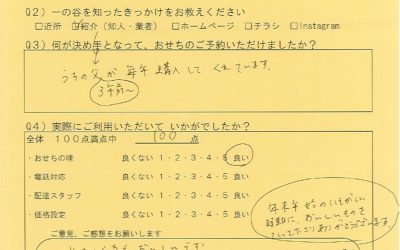 Q2) 一の谷を知ったきっかけをお教えください
□近所 ☑紹介(知人・業者) □ホームページ □チラシ □Instagram
Q3) 何が決め手となって、おせちのご予約いただけましたか?
うちの父が毎年購入してくれています。
3年前～
Q4) 実際にご利用いただいて いかがでしたか?
全体 100点満点中 100 点
・おせちの味 良くない 1・2・3・4・5 良い
・電話対応 良くない 1・2・3・4・5 良い
・配達スタッフ 良くない 1・2・3・4・5 良い
・価格設定 良くない 1・2・3・4・5 良い
年末年始のいそがしい
時期に、おいしいものを
ありがとうございます。
ご意見、ご感想をお願いします